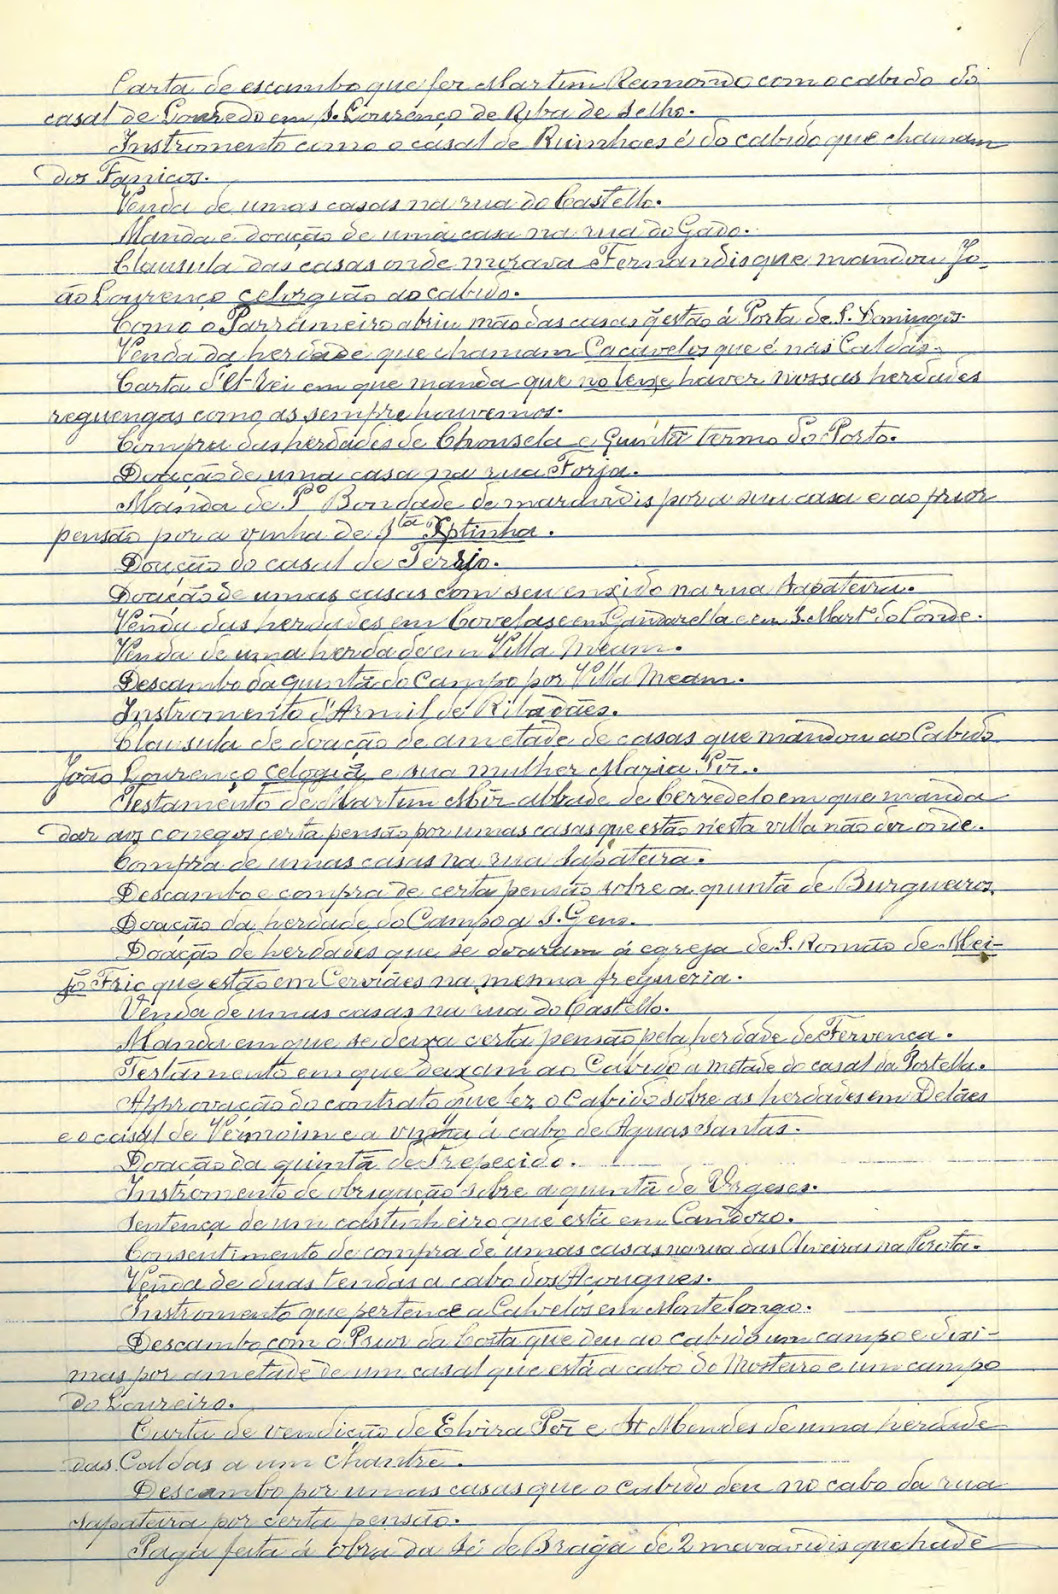 Carta de escambo que fez Martim Ramondo com o cabido do
casal de Louredo em S. Lourenço de Riba de Selho.
Instromento como o casal de Ruinhaes é do cabido que chamam
dos Fanicos.
Venda de umas casas na rua do Castello.
Manda e doação de uma casa na rua do Gado.
Clausula das casas onde morava Fernandis que mandou Jo-
ão Lourenço celorgião ao cabido.
Como o Parrameiro abriu mão das casas q̃ estão á Porta de S. Domingos.
Venda da herdade que chamam Cacavelos que é nas Caldas.
Carta d'El-rei em que manda que no leixe haver nossas herdades
reguengas como as sempre houvemos.
Compra das herdades de Chonsela e Quintã termo do Porto.
Doação de uma casa na rua Forja.
Manda de Pº Bondade de maravidis por a sua casa e ao prior
pensão por a vinha de Sta Xptinha.
Doação do casal de
Doação de umas casas com seu enxido na rua Sapateira.
Venda das herdades em Covelas e em Gandarella e em S. Mart.º do Conde.
Venda de uma herdade em Villa Meam.
Descambo da quintã do Campo por Villa Meam.
Instromento d'Armil de Ribadães.
Clausula de doação de ametade de casas que mandou ao Cabido
João Lourenço celogiã e sua mulher Maria Pĩr.
Testamento de Martim Mĩr abbade de Cerzedelo em que manda
dar aos conegos certa pensão por umas casas que estão n'esta villa não diz onde.
Compra de umas casas na rua Sapateira.
Descambo e compra de certa pensão sobre a quintã de Burgueiros.
Doação da herdade do Campo a S. Gens.
Doação de herdades que se doaram á egreja de S. Romão de Mei-
jõ Frio que estão em Cerviães na mesma freguezia.
Venda de umas casas na rua do Castello.
Manda em que se deixa certa pensão pela herdade de Fervença.
Testamento em que deixam ao Cabido a metade do casal da Portella.
Approvação do contrato que fez o Cabido sobre as herdades em Delães
e o casal de Vermoim e a vinha á cabo de Aguas Santas.
Doação da quintã de Trepecido.
Instromento de obrigação sobre a quintã de Urgeses.
Sentença de um castinheiro que está em Candozo.
Consentimento de compra de umas casas na rua das Oliveiras na Pirota.
Venda de duas tendas a cabo dos Açougues.
Instromento que pertence a Calvelos em Montelongo.
Descambo com o Prior da Costa que deu ao cabido um campo e dizi-
mas por ametade de um casal que está a cabo do Mosteiro e um campo
do Loureiro.
Carta de vendição de Elvira Pĩr e St Mendes de uma herdade
das Caldas a um chantre.
Descambo por umas casas que o cabido deu no cabo da rua
Sapateira por certa pensão.
Paga feita á obra da Sé de Braga de 2 maravidis que ha de